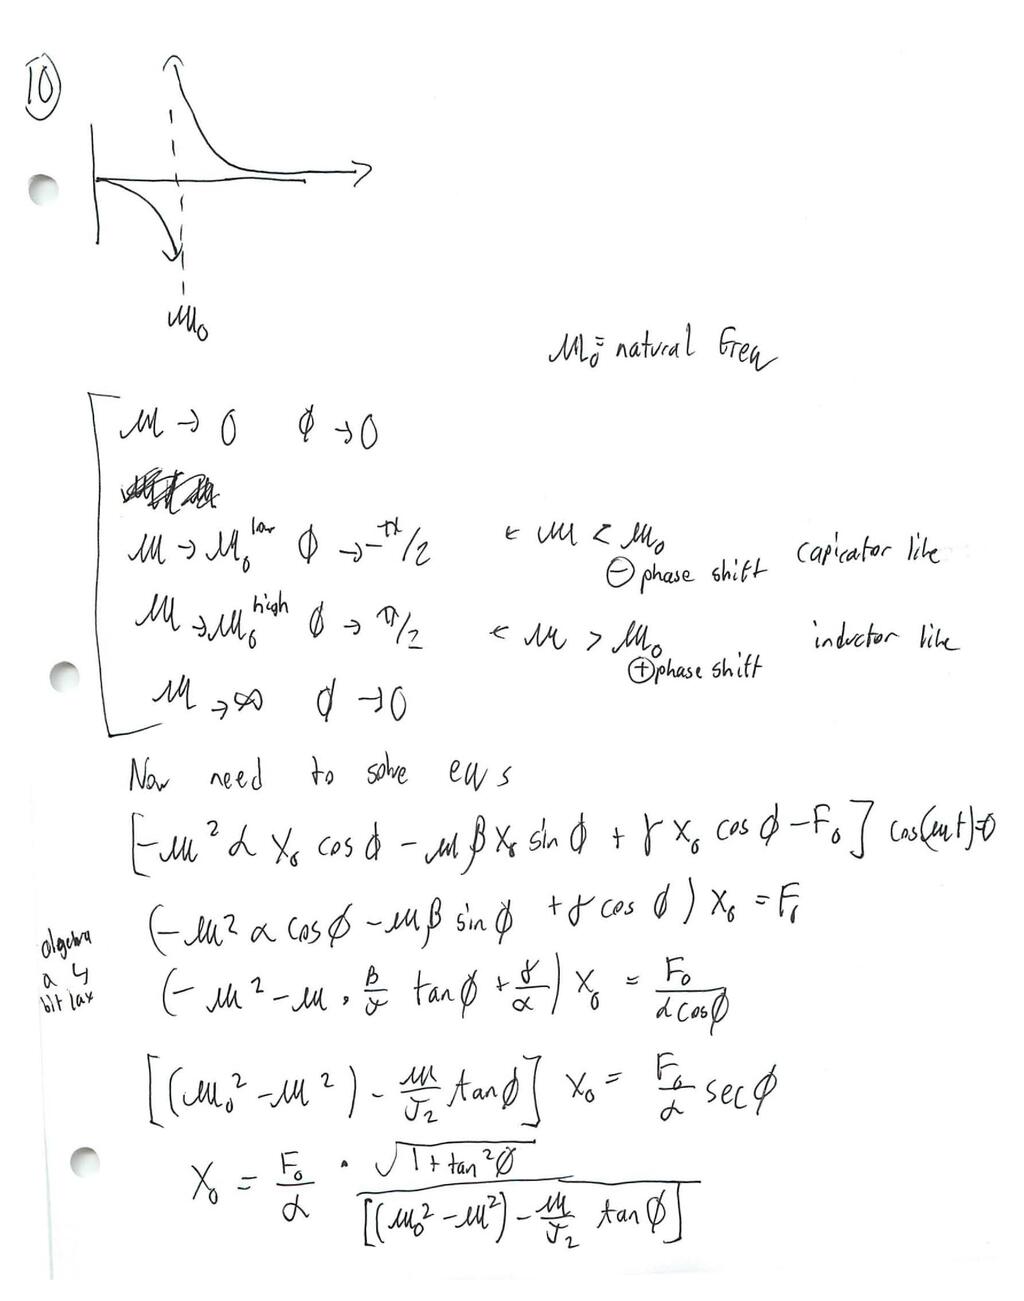 ⑩
ω₀
ω₀ = natural freq
ω → 0 ϕ → 0
ω → ω₀^low ϕ → -π/2 ← ω < ω₀ ⊖ phase shift capicator like
ω → ω₀^high ϕ → π/2 ← ω > ω₀ ⊕ phase shift inductor like
ω → ∞ ϕ → 0
Now need to solve eqs
[-ω² α X₀ cos ϕ - ω β X₀ sin ϕ + γ X₀ cos ϕ - F₀] cos(ωt) = 0
(-ω² α cos ϕ - ω β sin ϕ + γ cos ϕ) X₀ = F₀
algebra
a ↳
bit lax
(-ω² - ω · β/γ tan ϕ + γ/α) X₀ = F₀/(α cos ϕ)
[(ω₀² - ω²) - ω/J₂ tan ϕ] X₀ = F₀/α sec ϕ
X₀ = F₀/α · √(1 + tan² ϕ) / [(ω₀² - ω²) - ω/J₂ tan ϕ]